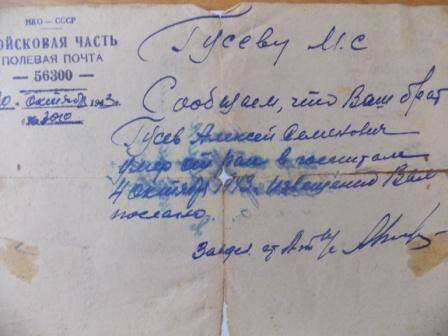 НКО — СССР
ВОЙСКОВАЯ ЧАСТЬ
ПОЛЕВАЯ ПОЧТА
— 56300 —
октября 1943
Гусеву М.С
Сообщаем, что Ваш брат
Гусев Алексей Семенович
умер от ран в госпитале
4 октября 1943. Извещение Вам
послано.